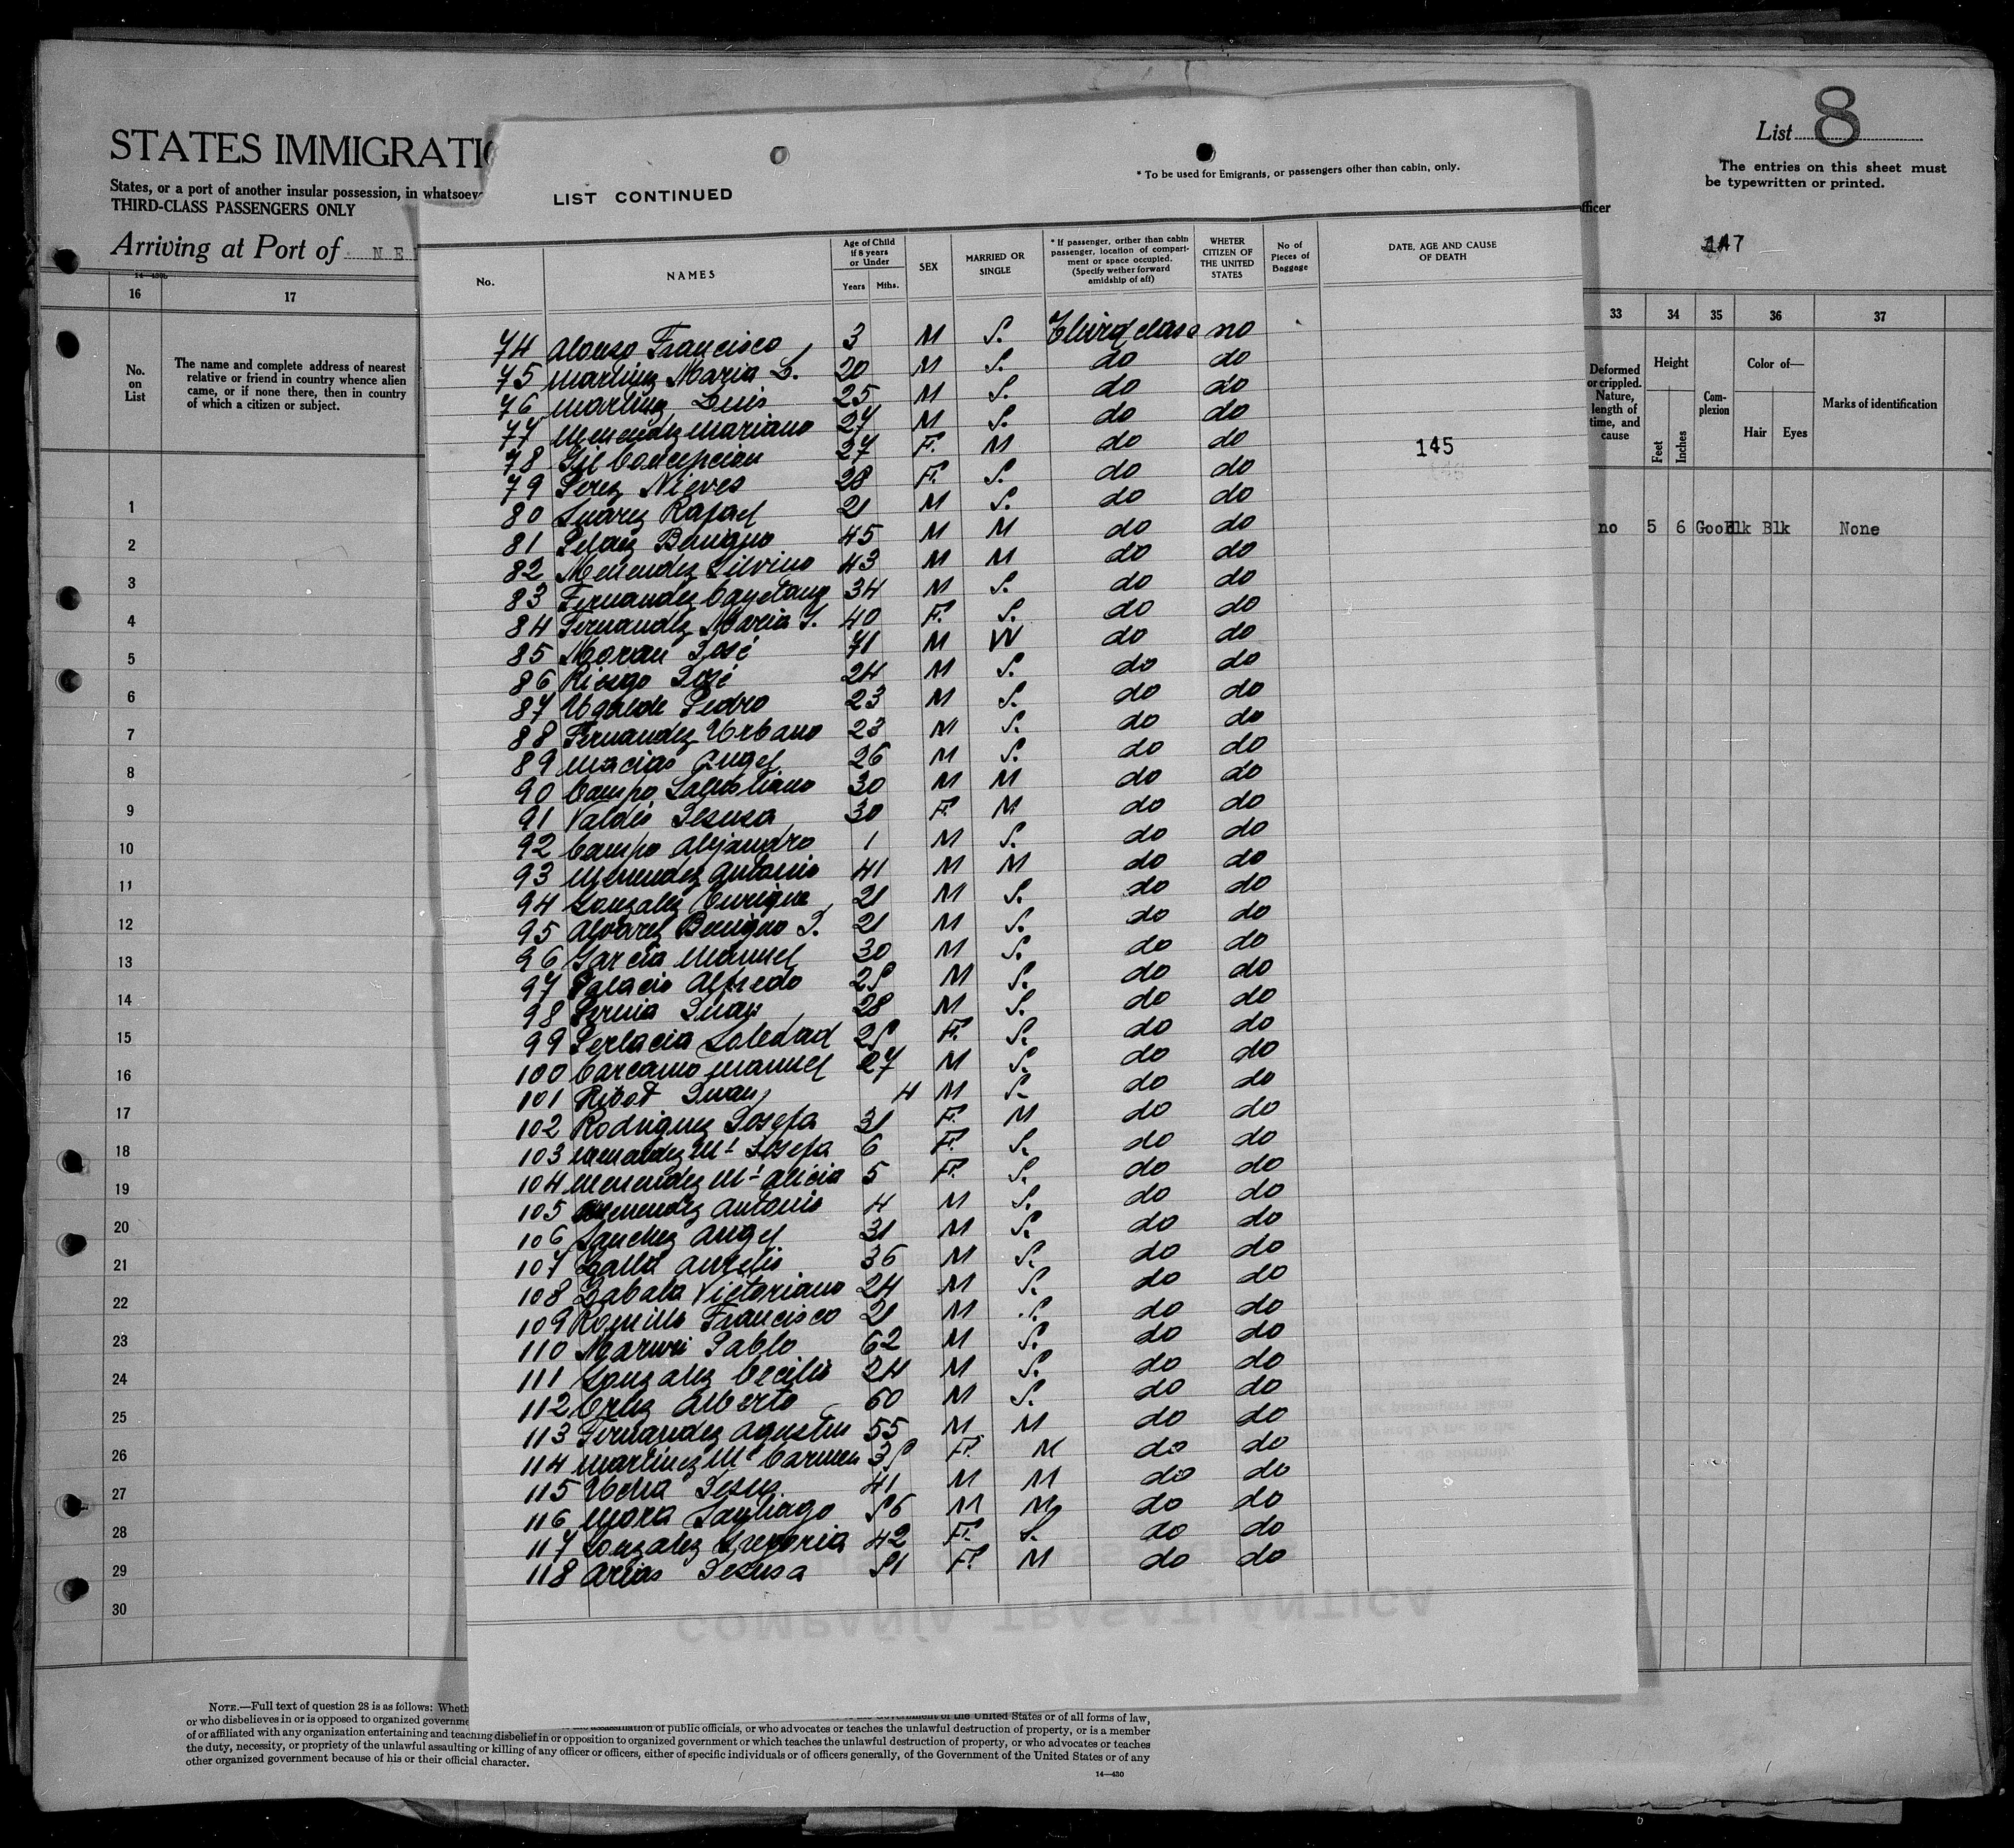 STATES IMMIGRATI
States, or a port of another insular possession, in whatsoev
THIRD-CLASS PASSENGERS ONLY
Arriving at Port of NE
List 8
The entries on this sheet must
be typewritten or printed.
147
LIST CONTINUED
* To be used for Emigrants, or passengers other than cabin, only.
No. NAMES Age of Child if 8 years or Under Years Mths. SEX MARRIED OR SINGLE * If passenger, orther than cabin passenger, location of compartiment or space occupied. (Specify wether forward amidship of aff) WHETER CITIZEN OF THE UNITED STATES No of Pieces of Baggage DATE, AGE AND CAUSE OF DEATH
74 Alonso Francisco 3 M S. Third class no
75 Martinez Maria L. 20 M S. do do
76 Martinez Luis 25 M S. do do
77 Menendez Mariano 27 M S. do do
78 Gil Concepcion 27 F. M do do
145
79 Perez Nieves 28 F. S. do do
80 Suarez Rafael 21 M S. do do
81 Pelaez Benigno 45 M M do do
82 Menendez Silvino 43 M M do do
83 Fernandez Cayetano 34 M S. do do
84 Fernandez Maria S. 40 F. S. do do
85 Moran José 71 M W do do
86 Riesgo José 24 M S. do do
87 Ugalde Pedro 23 M S. do do
88 Fernandez Urbano 23 M S. do do
89 Macias Angel 26 M S. do do
90 Campo 30 M M do do
91 Valdés Jesusa 30 F. M do do
92 Campo Alejandro 1 M S. do do
93 Menendez Antonio 41 M M do do
94 Gonzalez Enrique 21 M S. do do
95 Alvarez Benigno J. 21 M S. do do
96 Garcia Manuel 30 M S. do do
97 Palacio Alfredo 25 M S. do do
98 Juan 28 M S. do do
99 Perlacia Soledad 25 F. S. do do
100 Carcamo Manuel 27 M S. do do
101 Ribot Juan 4 M S. do do
102 Rodriguez Josefa 31 F. M do do
103 Menendez Mª Josefa 6 F. S. do do
104 Menendez Mª Alicia 5 F. S. do do
105 Menendez Antonio 4 M S. do do
106 Sanchez Angel 31 M S. do do
107 Aurelio 36 M S. do do
108 Zabala Victoriano 24 M S. do do
109 Romillo Francisco 21 M S. do do
110 Pablo 62 M S. do do
111 Gonzalez Cecilio 24 M S. do do
112 Alberto 60 M S. do do
113 Fernandez Agustin 55 M M do do
114 Martinez Mª Carmen 35 F. M do do
115 41 M M do do
116 Mora Santiago 56 M M do do
117 Gonzalez Gregoria 42 F. S. do do
118 Arias Jesusa 51 F. M do do
COMPAÑÍA TRASATLANTICA
14—430b
16 17
No. on List
The name and complete address of nearest
relative or friend in country whence alien
came, or if none there, then in country
of which a citizen or subject.
1
2
3
4
5
6
7
8
9
10
11
12
13
14
15
16
17
18
19
20
21
22
23
24
25
26
27
28
29
30
fficer
33 34 35 36 37
Deformed or crippled. Nature, length of time, and cause
Height Feet Inches
Complexion
Color of— Hair Eyes
Marks of identification
no 5 6 Good Blk Blk None
NOTE.—Full text of question 28 is as follows: Wheth
or who disbelieves in or is opposed to organized governme
Government of the United States or of all forms of law,
assassination of public officials, or who advocates or teaches the unlawful destruction of property, or is a member
of or affiliated with any organization entertaining and teaching disbelief in or opposition to organized government or which teaches the unlawful destruction of property, or who advocates or teaches
the duty, necessity, or propriety of the unlawful assaulting or killing of any officer or officers, either of specific individuals or of officers generally, of the Government of the United States or of any
other organized government because of his or their official character.
14—430